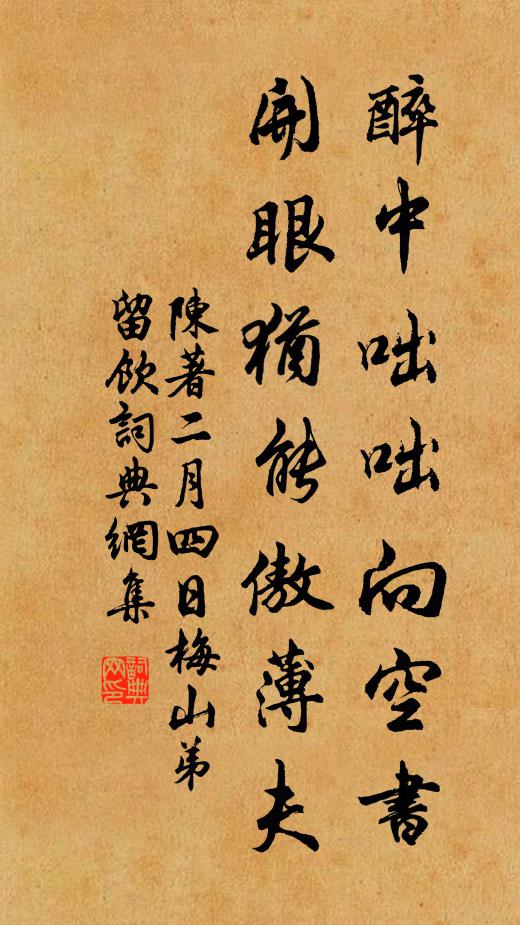 醉中咄咄向空書
開眼猶能傲薄夫
陳著二月四日梅山弟
留飲詞典網集
詞典網印